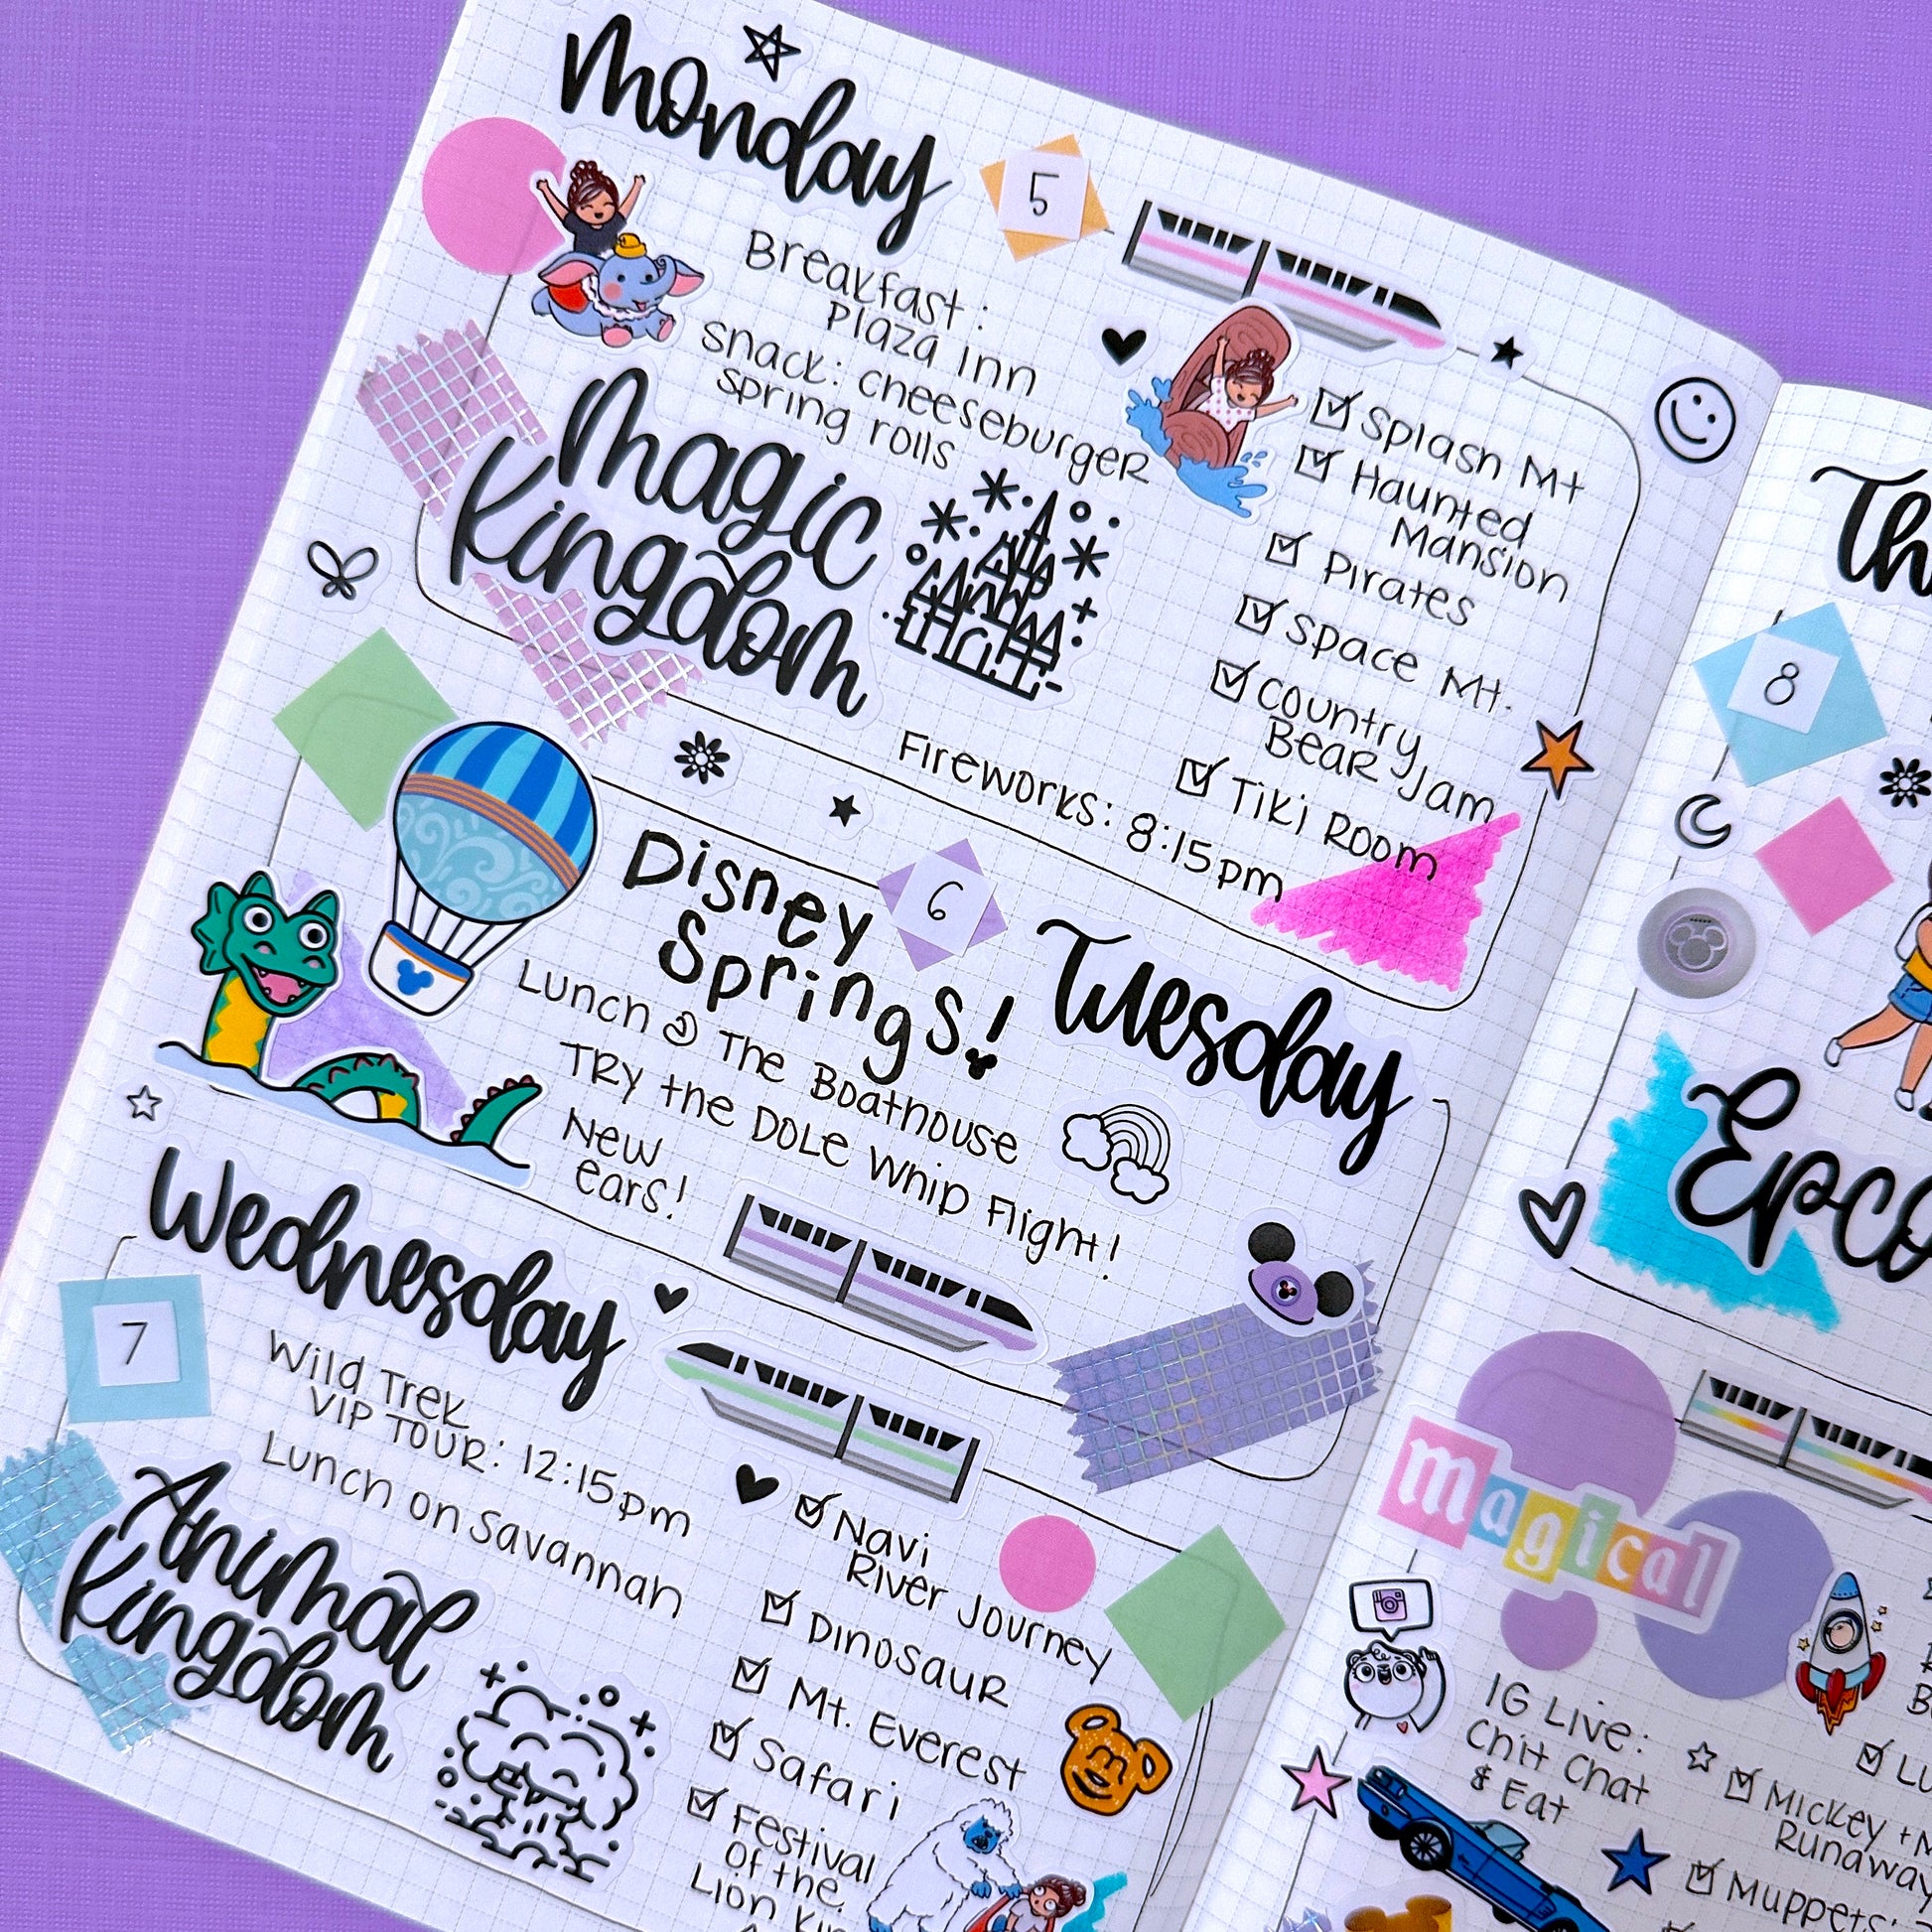 Monday
5
Breakfast:
Plaza Inn
Snack: Cheeseburger
Spring rolls
Magic
Kingdom
Splash Mt
Haunted
Mansion
Pirates
Space Mt.
Country
Bear Jam
Tiki Room
Fireworks: 8:15pm
Disney
Springs!
6
Tuesday
Lunch @ The Boathouse
Try the DOLE Whip Flight!
New
ears!
Wednesday
7
Wild Trek
VIP TOUR: 12:15pm
Lunch on Savannah
Animal
Kingdom
Navi
River Journey
Dinosaur
Mt. Everest
Safari
Festival
of the
Lion
8
magical
IG Live:
Chit Chat
& Eat
Mickey +
Runaway
Muppets